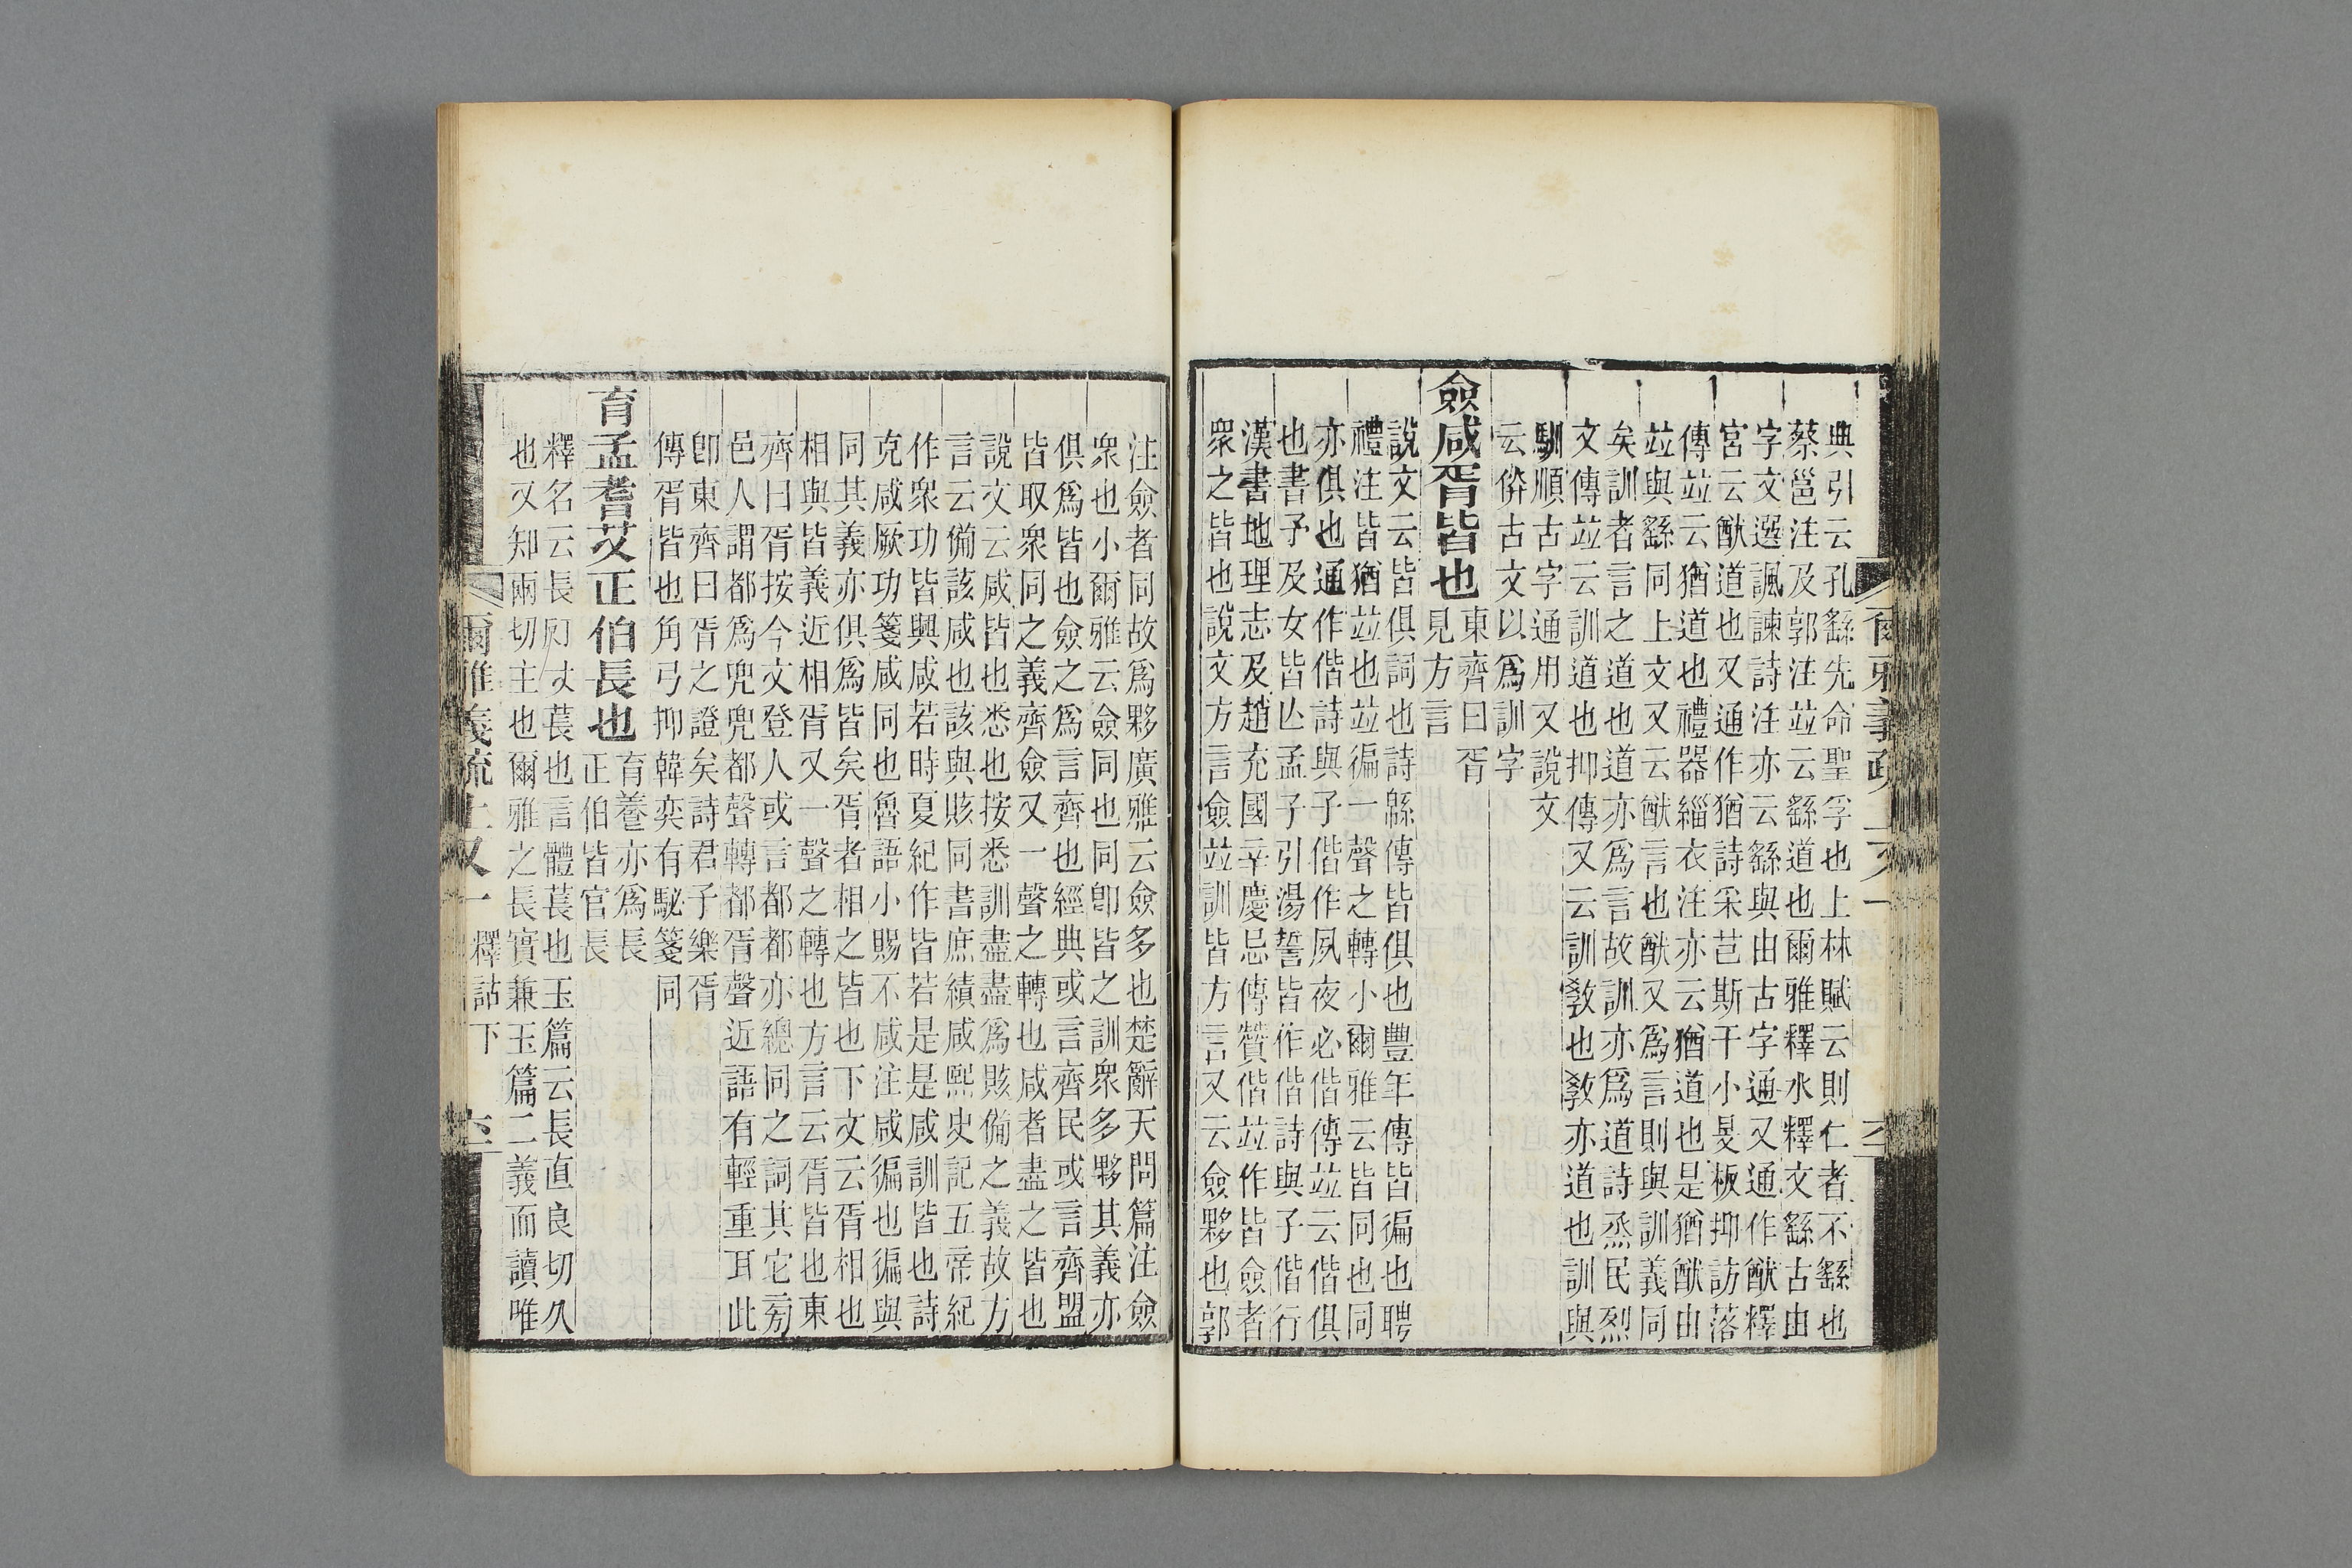 典引云孔繇先命聖孚也上林賦云則仁者不繇也
蔡邕注及郭注竝云繇道也爾雅釋水釋文繇古由
字文選諷諫詩注亦云繇與由古字通又通作猷釋
宮云猷道也又通作猶詩采芑斯干小旻板抑訪落
傳竝云猶道也禮器緇衣注亦云猶道也是猶猷由
竝與繇同上文又云猷言也猷又爲言則與訓義同
矣訓者言之道也道亦爲言故訓亦爲道詩烝民烈
文傳竝云訓道也抑傳又云訓敎也敎亦道也訓與
馴順古字通用又說文
云㑞古文以爲訓字
僉咸胥皆也
東齊曰胥
見方言
說文云皆俱詞也詩緜傳皆俱也豐年傳皆徧也聘
禮注皆猶竝也竝徧一聲之轉小爾雅云皆同也同
亦俱也通作偕詩與子偕作夙夜必偕傳竝云偕俱
也書予及女皆亾孟子引湯誓皆作偕詩與子偕行
漢書地理志及趙充國辛慶忌傳贊偕竝作皆僉者
衆之皆也說文方言僉竝訓皆方言又云僉夥也郭
注僉者同故爲夥廣雅云僉多也楚辭天問篇注僉
衆也小爾雅云僉同也同卽皆之訓衆多夥其義亦
俱爲皆也僉之爲言齊也經典或言齊民或言齊盟
皆取衆同之義齊僉又一聲之轉也咸者盡之皆也
說文云咸皆也悉也按悉訓盡盡爲賅備之義故方
言云備該咸也該與賅同書庶績咸熙史記五帝紀
作衆功皆興咸若時夏紀作皆若是是咸訓皆也詩
克咸厥功箋咸同也魯語小賜不咸注咸徧也徧與
同其義亦俱爲皆矣胥者相之皆也下文云胥相也
相與皆義近相胥又一聲之轉也方言云胥皆也東
齊曰胥按今文登人或言都都亦總同之詞其它㫄
邑人謂都爲兜兜都聲轉都胥聲近語有輕重耳此
卽東齊曰胥之證矣詩君子樂胥
傳胥皆也角弓抑韓奕有駜箋同
育孟耆艾正伯長也
育養亦爲長
正伯皆官長
釋名云長萇也言體萇也玉篇云長直良切久
也又知兩切主也爾雅之長實兼玉篇二義而讀唯
爾雅義疏上又一 釋詁下